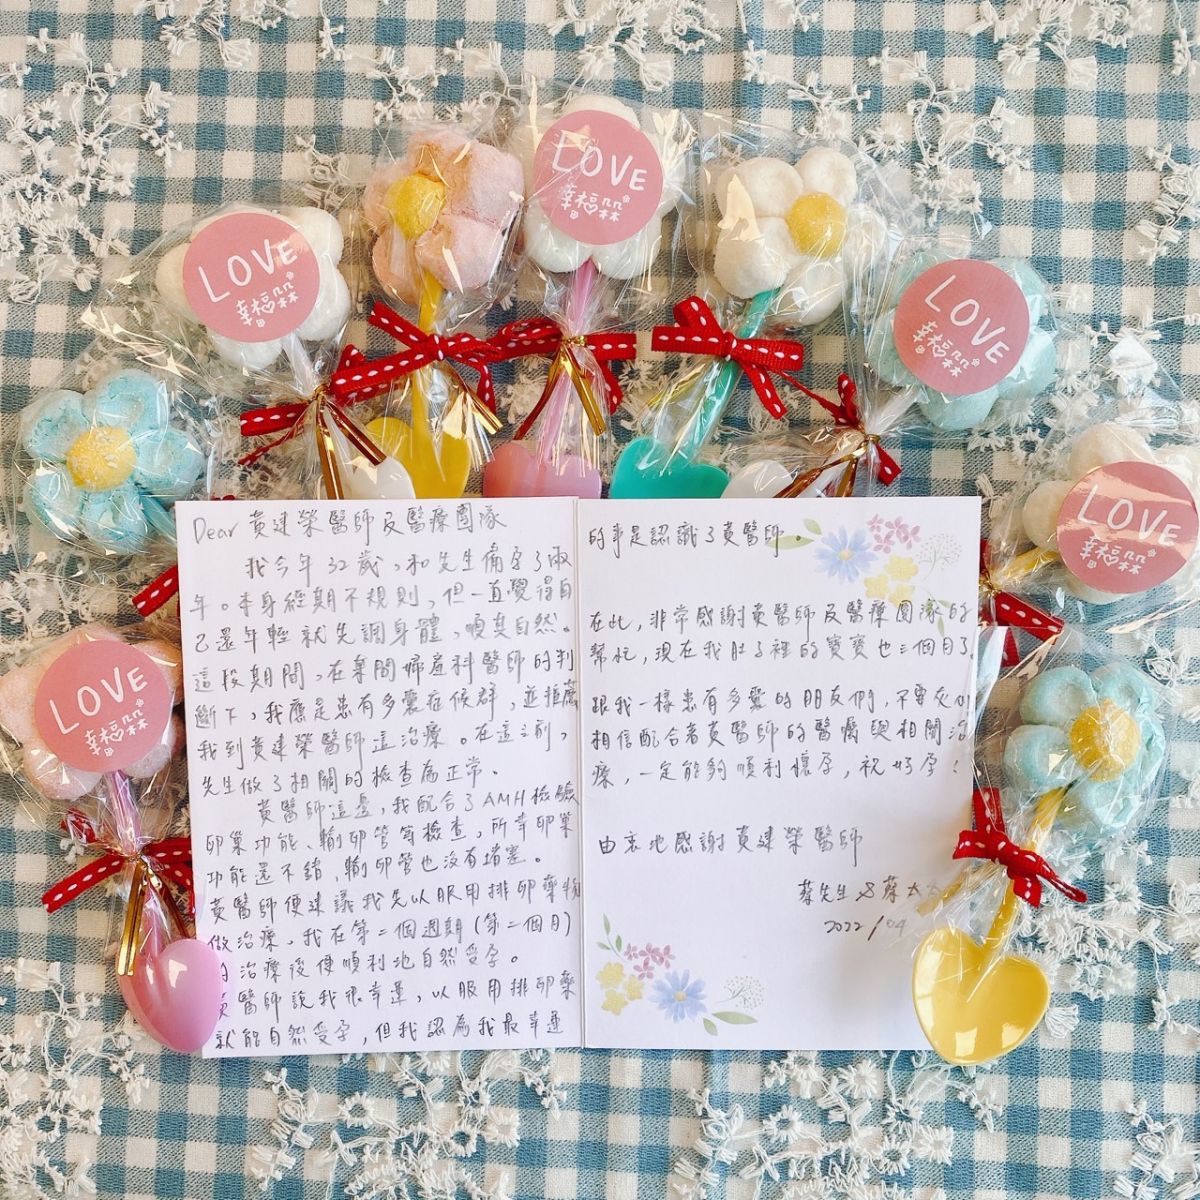 LOVE
幸福
LOVE
幸福
LOVE
幸福
LOVE
幸福
LOVE
幸福
Dear 黃建榮醫師及醫療團隊
我今年32歲，和先生備孕了兩
年。本身經期不規則，但一直覺得自
己還年輕就先調身體，順其自然。
這段期間，在某間婦產科醫師的判
斷下，我應是患有多囊在候群，並推薦
我到黃建榮醫師這治療。在這之前，
先生做了相關的檢查為正常。
黃醫師這邊，我配合了AMH檢驗
卵巢功能、輸卵管等檢查，所幸卵巢
功能還不錯，輸卵管也沒有堵塞。
黃醫師便建議我先以服用排卵藥物
做治療，我在第二個週期(第二個月)
的治療後便順利地自然受孕。
黃醫師說我很幸運，以服用排卵藥
就能自然受孕，但我認為我最幸運
的事是認識了黃醫師。
在此，非常感謝黃醫師及醫療團隊的
幫忙，現在我肚子裡的寶寶也三個月了。
跟我一樣患有多囊的朋友們，不要灰心
相信配合著黃醫師的醫囑與相關治
療，一定能夠順利懷孕，祝好孕！
由衷地感謝黃建榮醫師
蔡先生 & 蔡太太
2022/04